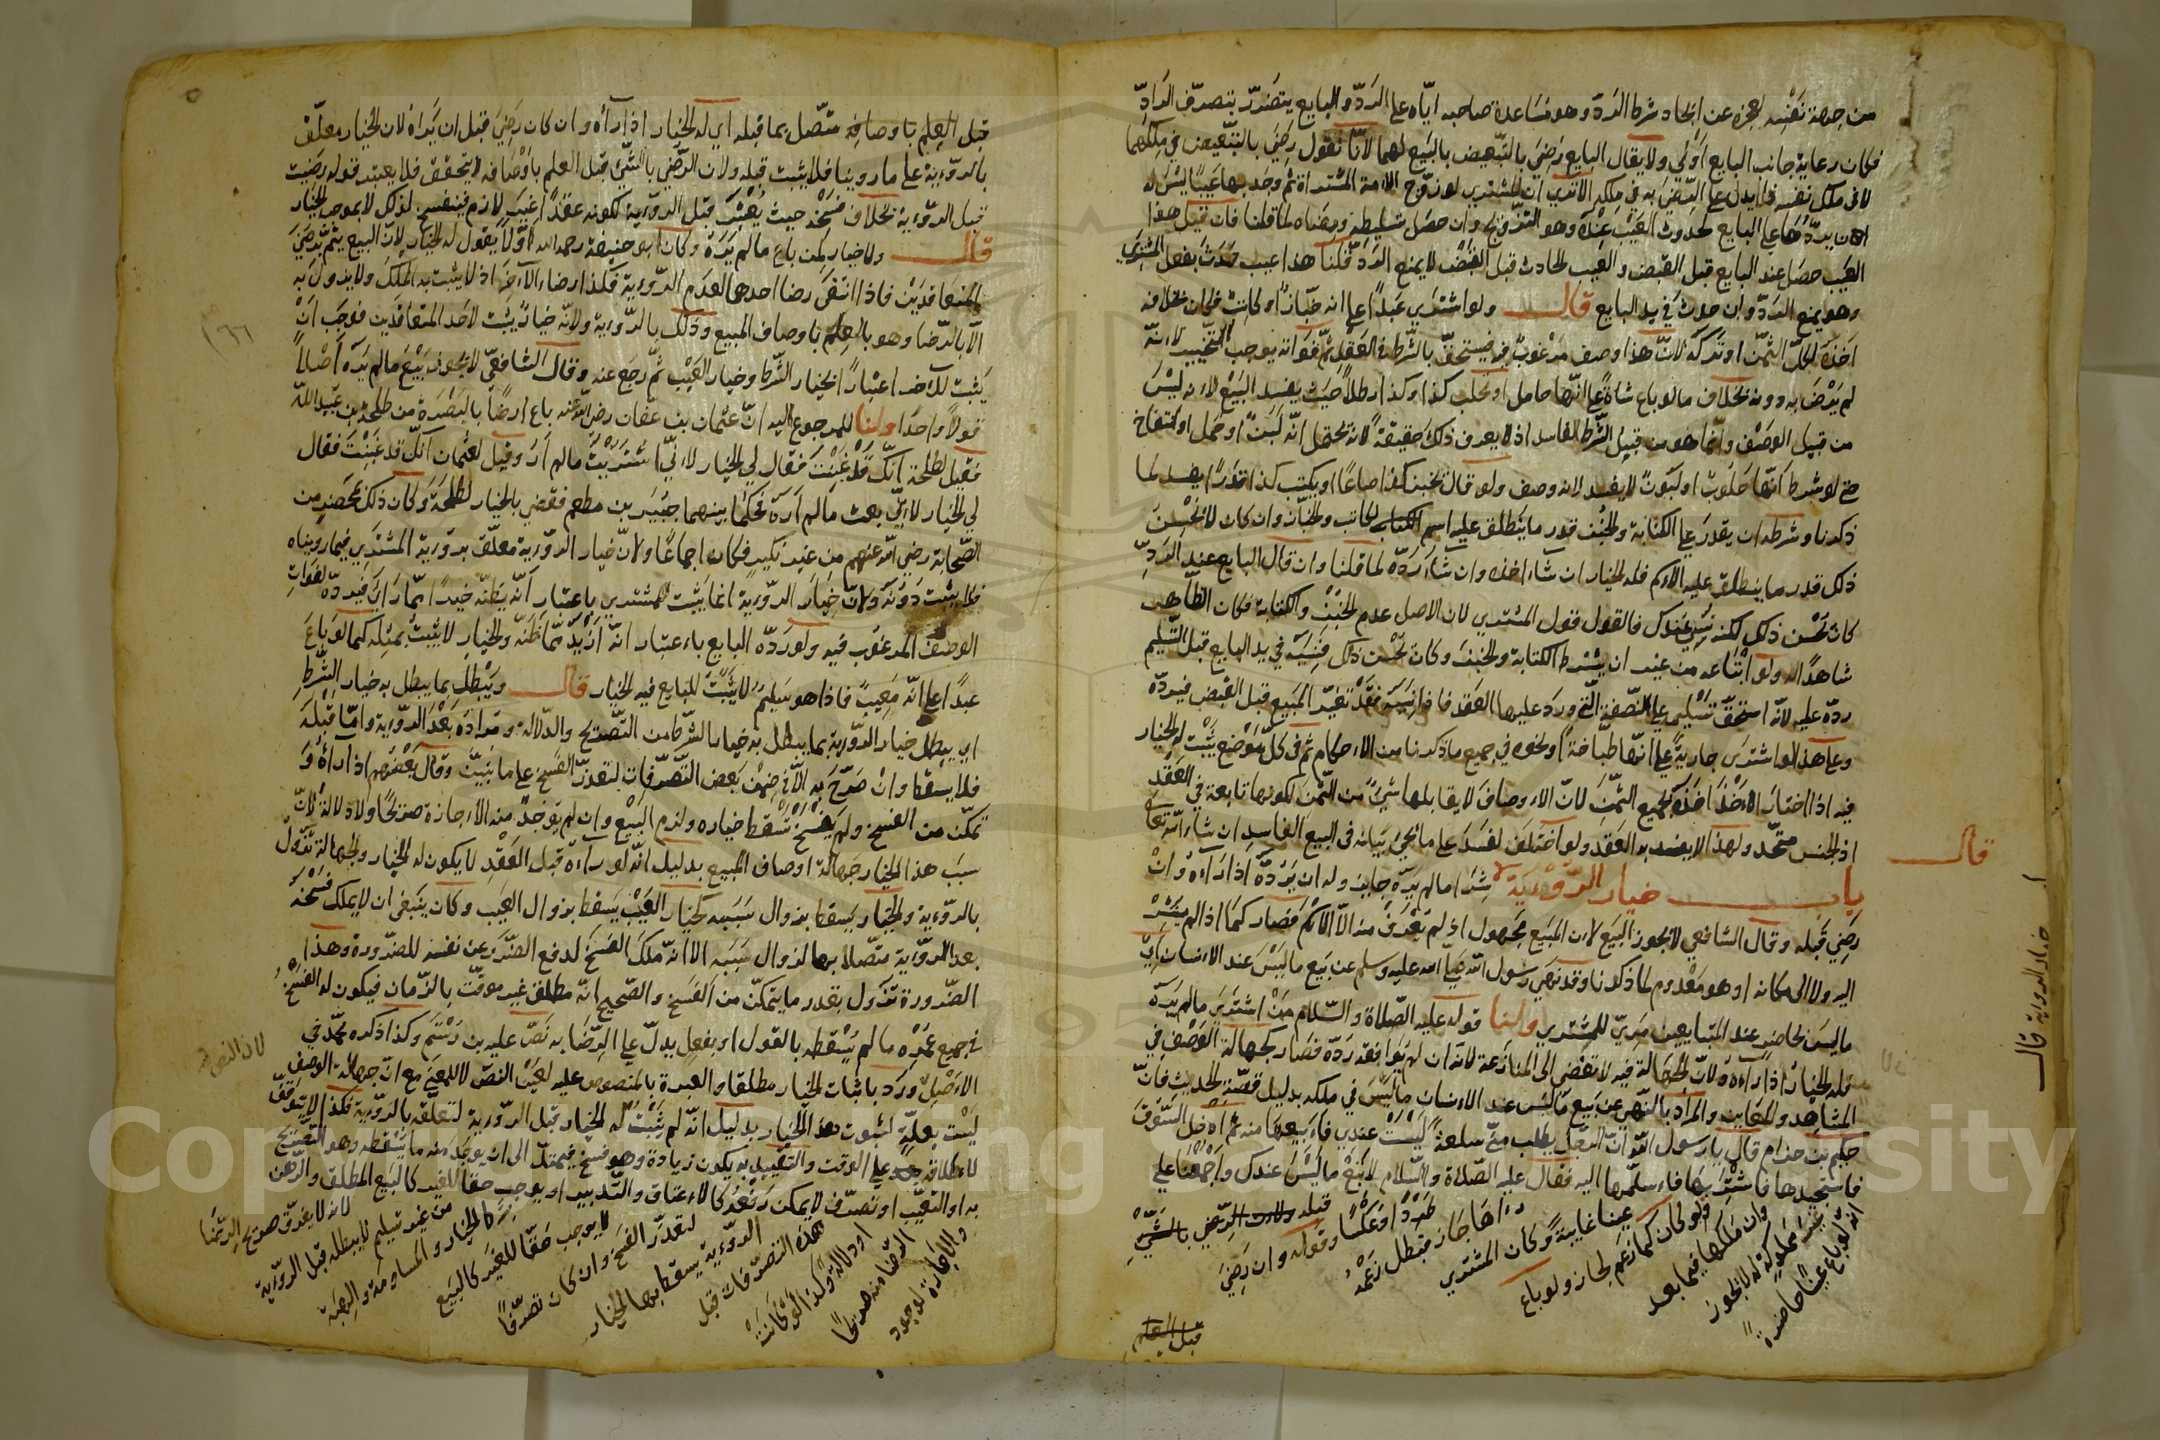 من جهة نفسه لعجزه عن إيجاد شرط الرد وهو مساعدة صاحبه إيّاه على الردّ والبايع يتضرّر بتصرّف الرادّ
فكان رعاية جانب البايع أولى ولا يقال البايع رضي بالتبعيض بالبيع لهما لأنّا نقول رضي بالتبعيض في ملكهما
لا في ملك نفسه فلا يدلّ على الرضى به في ملكه ألا ترى أن المشتري لو زوّج الامة المشتراة ثم وجد بها عيبًا ليس له
ان يردّها على البايع لحدوث العيب عنده وهو التزويج وان حصل تسليطه ورضاه لما قلنا فان قيل هذا
العيب حصل عند البايع قبل القبض والعيب الحادث قبل القبض لا يمنع الردّ قلنا هذا عيب حدث بفعل المشتري
وهو يمنع الردّ وان حدث في يد البايع قال ولو اشترى عبدًا على انه خبّازًا او كاتبٌ فكان بخلافه
اخذه بكلّ الثمن او تركه لانّ هذا وصف مرغوبٌ فيه فيستحقّ بالشرط في العقد ثمّ فواته يوجب التخيير لانّه
لم يرض به دونه بخلاف ما لو باع شاةً على انّها حامل او تحلب كذا وكذا رطلاً حيث يفسد البيع لانه ليس
من قبيل الوصف وانّما هو من قبيل الشرط الفاسد اذ لا يعرف ذلك حقيقةً لانه يحتمل انّه لبنٌ او حمل او انتفاخ
حتى لو شرط انّها حلوب او لبون لا يفسد لانه وصف ولو قال تخبز كذا صاعًا او يكتب كذا قدرًا يفسد لما
ذكرنا وشرطه ان يقدر على الكتابة والخبز قدر ما ينطلق عليه اسم الكاتب والخبّاز وان كان لا يحسن
ذلك قدر ما ينطلق عليه الاسم فله الخيار ان شاء اخذه وان شاء ردّه لما قلنا وان قال البايع عند الردّ
كان يحسن ذلك لكنه نسي عندك فالقول قول المشتري لان الاصل عدم الخبز والكتابة فكان الظاهر
شاهدًا له ولو ابتاعه من غير ان يشترط الكتابة والخبز وكان يحسن ذلك فنسيه في يد البايع قبل التسليم
ردّه عليه لانّه استحقّ تسليمه على الصّفة الّتي ورد عليها العقد فاذا نسيه فقد تغيّر المبيع قبل القبض فيردّه
وعلى هذا لو اشترى جاريةً على انّها طبّاخة او نحوه في جميع ما ذكرنا من الاحكام ثم في كلّ موضع يثبت له الخيار
فيه اذا اختار الاخذ اخذه بجميع الثمن لانّ الاوصاف لا يقابلها شيءٌ من الثمن لكونها تابعة في العقد
اذ الجنس متّحد ولهذا لا يفسد به العقد ولو اختلف لفسد على ما يجيئ بيانه في البيع الفاسد ان شاء الله تعالى
قال
باب خيار الرّؤية شراء ما لم يره جايز وله ان يردّه اذا رآه وان
رضي قبله وقال الشافعي لا يجوز البيع لان المبيع مجهول اذ لم يعرف منه الّا الاسم فصار كما اذا لم يشر
اليه ولا الى مكانه او هو معدوم لما ذكرنا وقد نهى رسول الله صلى الله عليه وسلم عن بيع ما ليس عند الانسان اي
ما ليس بحاضر عند المتبايعين مرئيّ للمشتري ولنا قوله عليه الصلاة والسّلام من اشترى ما لم يره
فله الخيار اذا رآه ولانّ الجهالة فيه لا تفضي الى المنازعة لانه ان لم يوافقه ردّه فصار كجهالة الوصف في
المشاهد والمعاين والمراد بالنهي عن بيع ما ليس عند الانسان ما ليس في ملكه بدليل قصّة الحديث فانّ
حكيم بن حزام قال يا رسول الله انّ الرّجل يطلب منّي سلعةً ليست عندي فابيعها منه ثم ادخل السّوق
فاستجيدها فاشتريها فاسلّمها اليه فقال عليه الصلاة والسلام لا تبع ما ليس عندك واجمعنا على
انّه لو باع عينًا حاضرةً
غير مملوكة له لا يجوز
وان ملكها فيما بعد
ولو كان كما زعم لجاز ولو باع
عينًا غايبة وكان المشتري
رآها جاز فبطل زعمه
طردًا وعكسًا وقوله وان رضي
قبله
قبل العلم
خيار الرؤية قال
قبل العلم باوصافه متّصل بما قبله اي له الخيار اذا رآه وان كان رضي قبل ان يراه لان الخيار معلّق
بالرّؤية على ما روينا فلا يثبت قبله ولان الرضى بالشيء قبل العلم باوصافه لا يتحقق فلا يعتبر قوله رضيت
قبل الرؤية بخلاف فسخه حيث يعتبر قبل الرؤية لكونه عقدًا غير لازم فينفسخ لذلك لا بموجب الخيار
قال ولا خيار لمن باع ما لم يره وكان ابو حنيفة رحمه الله اوّلا يقول له الخيار لانّ البيع يتم برضى
المتعاقدين فاذا انتفى رضا احدهما لعدم الرؤية فكذا رضا الآخر اذ لا يثبت به الملك ولا يزول به
الّا بالرّضا وهو بالعلم باوصاف المبيع وذلك بالرّؤية ولانّه خيار يثبت لاحد المتعاقدين فوجب ان
يثبت للآخر اعتبارًا بخيار الشرط وخيار العيب ثمّ رجع عنه وقال الشافعي لا يجوز بيع ما لم يره اصلاً
قولاً واحدًا ولنا للمرجوع اليه انّ عثمان بن عفان رضي الله عنه باع ارضًا بالبصرة من طلحة بن عبيد اللّه
فقيل لطلحة انّك قد غبنت فقال لي الخيار لانّي اشتريت ما لم ار وقيل لعثمان انّك قد غبنت فقال
لي الخيار لانّي بعت ما لم اره فحكّما بينهما جبير بن مطعم فقضى بالخيار لطلحة وكان ذلك بمحضر من
الصّحابة رضي الله عنهم من غير نكير فكان اجماعًا ولانّ خيار الرّؤية معلّق برؤية المشتري فيما رويناه
فلا يثبت دونه ولانّ خيار الرّؤية انما يثبت للمشتري باعتبار انّه يظنّه خيرًا ممّا رأى فيردّه لفوات
الوصف المرغوب فيه ولو ردّه البايع باعتبار انّه ازيد ممّا ظنّه والخيار لا يثبت بمثله كما لو باع
عبدًا على انّه معيب فاذا هو سليم لا يثبت للبايع فيه الخيار قال ويبطل بما يبطل به خيار الشرط
اي يبطل خيار الرؤية بما يبطل به خيار الشرط من التّصريح والدّلالة ومراده بعد الرّؤية وامّا قبله
فلا يسقط وان صرّح به الّا في ضمن بعض التّصرّفات لتعذّر الفسخ على ما نبيّن وقال بعضهم اذا رآه و
تمكّن من الفسخ ولم يفسخ تسقط خياره ولزم البيع وان لم توجد منه الاجازة صريحًا ولا دلالة لانّ
سبب هذا الخيار جهالة اوصاف المبيع بدليل انّه لو رآه قبل العقد لا يكون له الخيار والجهالة تزول
بالرّؤية والخيار يسقط بزوال سببه كخيار العيب يسقط بزوال العيب وكان ينبغي ان لا يملك فسخه
بعد الرّؤية متّصلا بها لزوال سببه الا انّه ملك الفسخ لدفع الضّرر عن نفسه للضرورة وهذا
الضرورة تزول بقدر ما يتمكّن من الفسخ والصّحيح انّه مطلق غير موقّت بالزّمان فيكون له الفسخ
في جميع عمره ما لم يسقطه بالقول او بفعل يدلّ على الرّضا به نصّ عليه بن رستم وكذا ذكره محمّد في
الاصل لان النص ورد باثبات الخيار مطلقا والعبرة بالمنصوص عليه لعين النصّ لا للمعنى مع انّ جهالة الوصف
ليست بعلّة لثبوت هذا الخيار بدليل انّه لم يثبت له الخيار قبل الرّؤية لتعلّقه بالرّؤية فكذا لا يتوقّف
لاطلاقه على الوقت والتقييد به يكون زيادة وهو فسخ فيمتدّ الى ان يوجد منه ما يسقطه وهو التصريح
به او التعيّب او تصرّف لا يمكن رفعه كالاعتاق والتّدبير او يوجب حقًّا للغير كالبيع المطلق والرّهن
والاجارة لوجود
الرّضا منه صريحًا
او دلالة وكذا لو كانت
هذه التصرّفات قبل
الرّؤية يسقط بها الخيار
لتعذّر الفسخ وان كان تصرّفًا
لا يوجب حقًّا للغير كالبيع
بشرط الخيار والمساومة والهبة
من غير تسليم لا يبطله قبل الرّؤية
لانه لا يفوق صريح الرّضا
Copyright © King Saud University